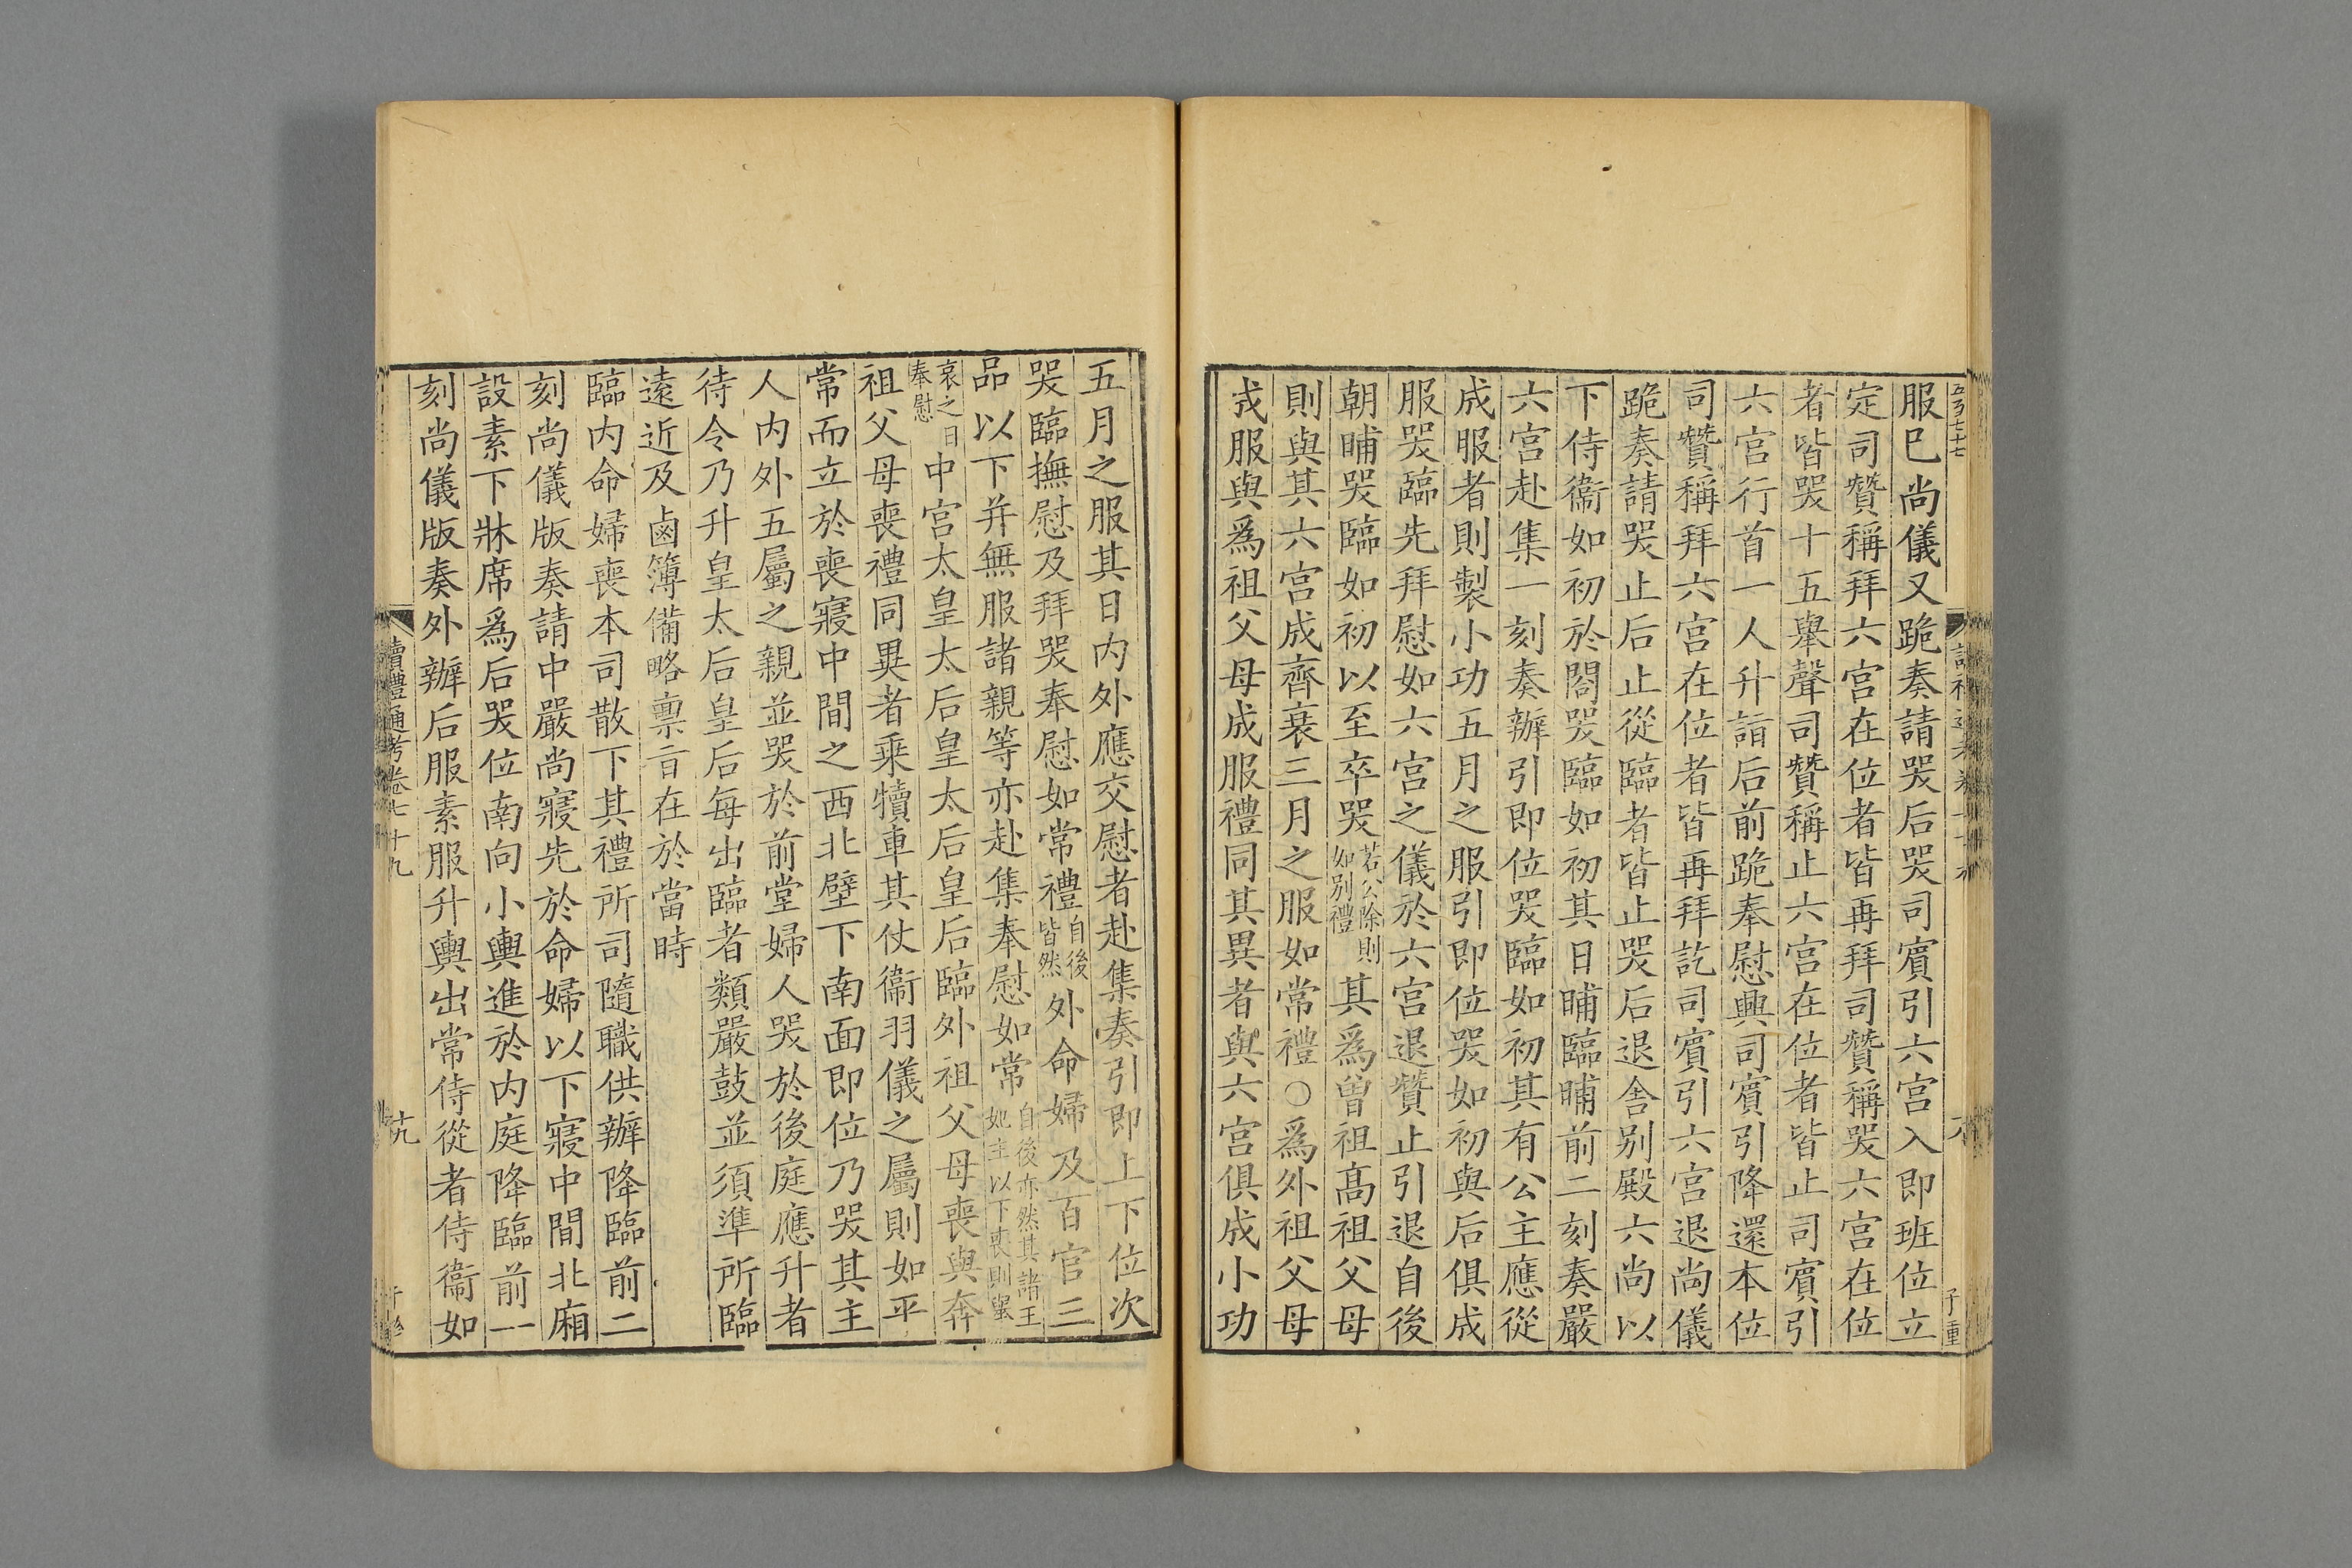 服巳尚儀又跪奏請哭后哭司賓引六宮入即班位立
定司贊稱拜六宮在位者皆再拜司贊稱哭六宮在位
者皆哭十五舉聲司贊稱止六宮在位者皆止司賓引
六宮行首一人升詣后前跪奉慰興司賓引降還本位
司贊稱拜六宮在位者皆再拜訖司賓引六宮退尚儀
跪奏請哭止后止從臨者皆止哭后退舍别殿六尚以
下侍衞如初於閤哭臨如初其日晡臨晡前二刻奏嚴
六宮赴集一刻奏辦引即位哭臨如初其有公主應從
成服者則製小功五月之服引即位哭如初與后俱成
服哭臨先拜慰如六宮之儀於六宮退贊止引退自後
朝晡哭臨如初以至卒哭若公除則如别禮其爲曾祖髙祖父母
則與其六宮成齊衰三月之服如常禮○爲外祖父母
成服與爲祖父母成服禮同其異者與六宮俱成小功
五月之服其日内外應交慰者赴集奏引即上下位次
哭臨撫慰及拜哭奉慰如常禮自後皆然外命婦及百官三
品以下并無服諸親等亦赴集奉慰如常自後亦然其諸王妃主以下喪則舉
哀之日奉慰中宮太皇太后皇太后皇后臨外祖父母喪與奔
祖父母喪禮同異者乗犢車其仗衞羽儀之屬則如平
常而立於喪寢中間之西北壁下南面即位乃哭其主
人内外五屬之親並哭於前堂婦人哭於後庭應升者
待令乃升皇太后皇后每出臨者類嚴鼓並須準所臨
遠近及鹵簿備略禀旨在於當時
臨内命婦喪本司散下其禮所司隨職供辦降臨前二
刻尚儀版奏請中嚴尚寢先於命婦以下寢中間北廂
設素下牀席爲后哭位南向小輿進於内庭降臨前一
刻尚儀版奏外辦后服素服升輿出常侍從者侍衞如
讀禮通考卷七十九
十九